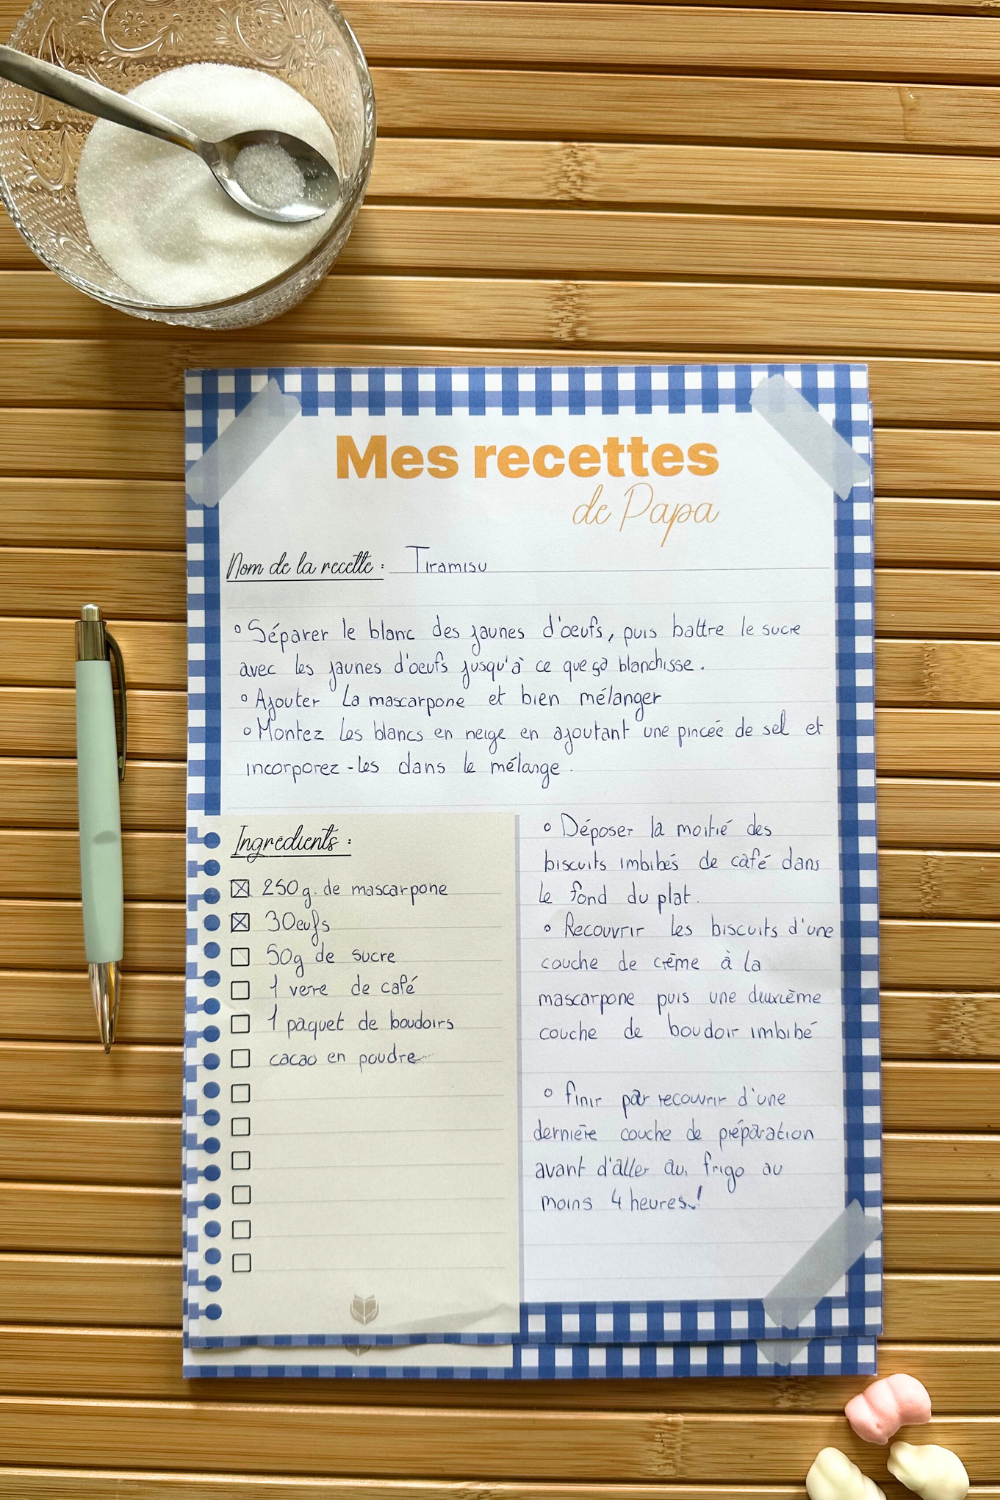 Mes recettes
de Papa
Nom de la recette : Tiramisu
° Séparer le blanc des jaunes d'oeufs, puis battre le sucre
avec les jaunes d'oeufs jusqu'à ce que ça blanchisse.
° Ajouter La mascarpone et bien mélanger
° Montez les blancs en neige en ajoutant une pinceé de sel et
incorporez-les dans le mélange.
Ingrédients :
☒ 250g. de mascarpone
☒ 3 Oeufs
☐ 50g de sucre
☐ 1 vere de café
☐ 1 paquet de boudoirs
☐ cacao en poudre
° Déposer la moitié des
biscuits imbibés de café dans
le fond du plat.
° Recouvrir les biscuits d'une
couche de crème à la
mascarpone puis une deuxième
couche de boudoir imbibé
° finir par recouvrir d'une
dernière couche de préparation
avant d'aller au frigo au
moins 4 heures !